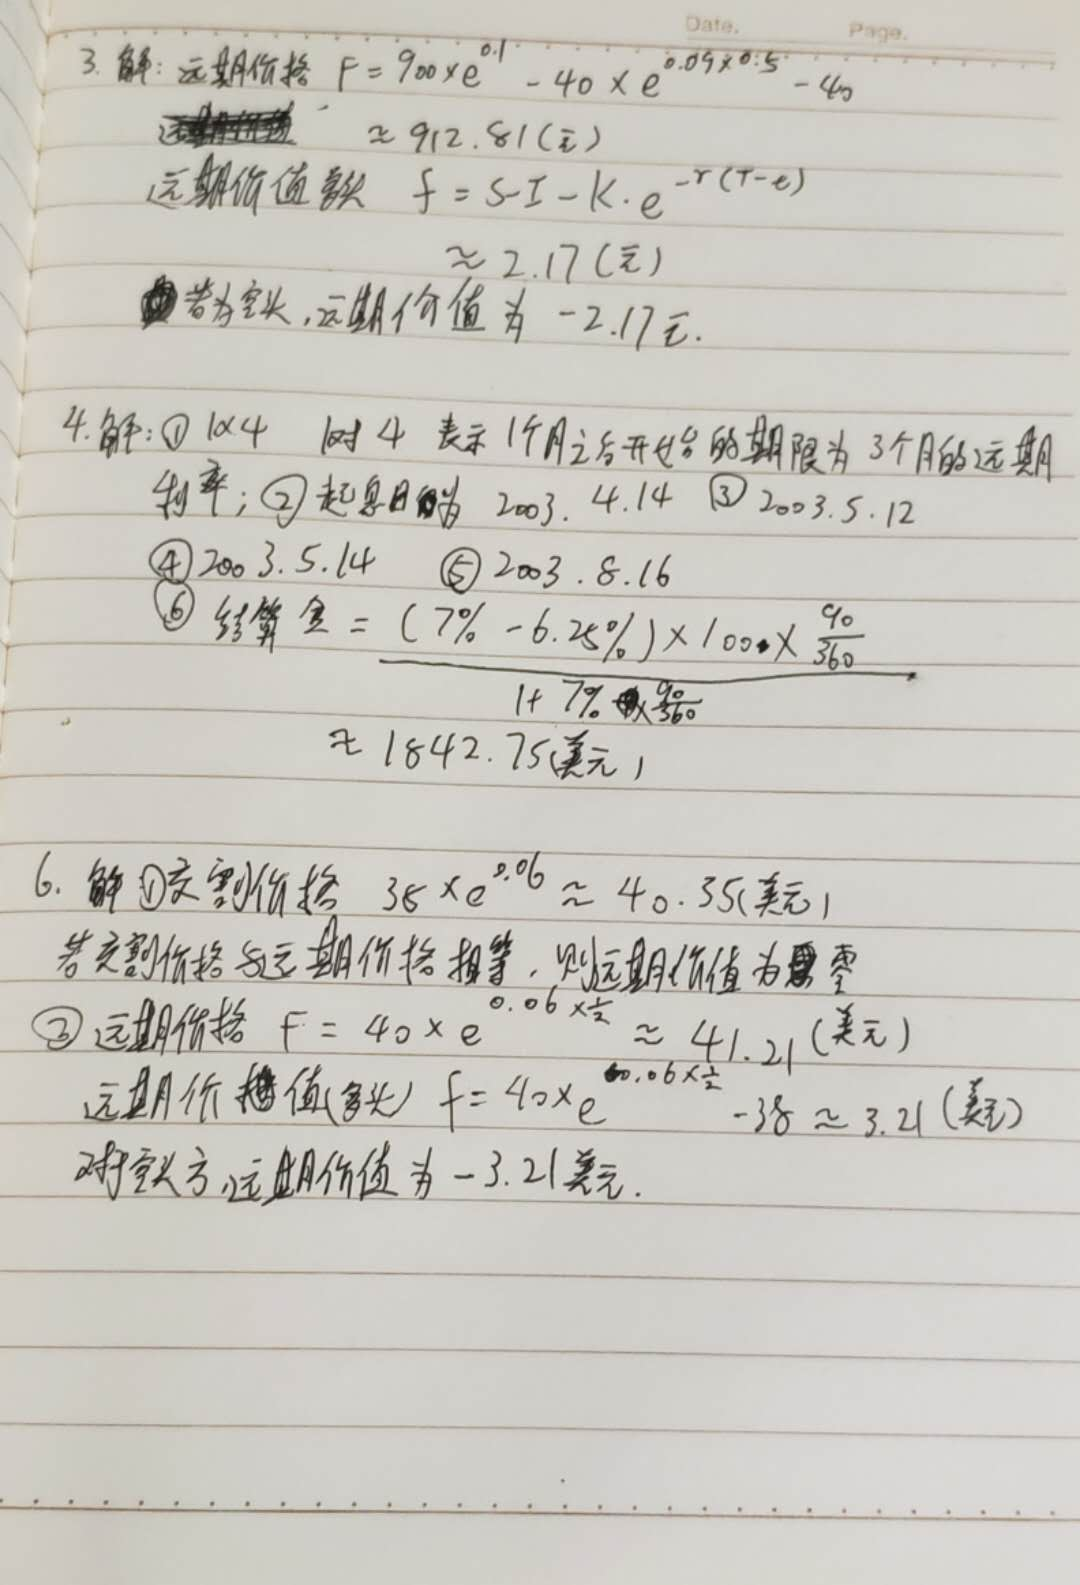 Date. Page.
3. 解: 远期价格 F = 900 × e^0.1 - 40 × e^0.09×0.5 - 40
≈ 912.81(元)
远期价值多头 f = S-I-K·e^-r(T-t)
≈ 2.17(元)
若为空头,远期价值为 -2.17元.
4. 解: ① 1×4 1对4 表示1个月之后开始的期限为3个月的远期
利率; ② 起息日为 2003.4.14 ③ 2003.5.12
④ 2003.5.14 ⑤ 2003.8.16
⑥ 结算金 = (7% - 6.25%) × 100 × 90/360
1 + 7% × 90/360
≈ 1842.75(美元)
6. 解 ①交割价格 38 × e^0.06 ≈ 40.35(美元)
若交割价格与远期价格相等,则远期价值为零
② 远期价格 F = 40 × e^0.06×1/2 ≈ 41.21(美元)
远期价值(多头) f = 40 × e^0.06×1/2 - 38 ≈ 3.21(美元)
对于空头方,远期价值为 -3.21美元.